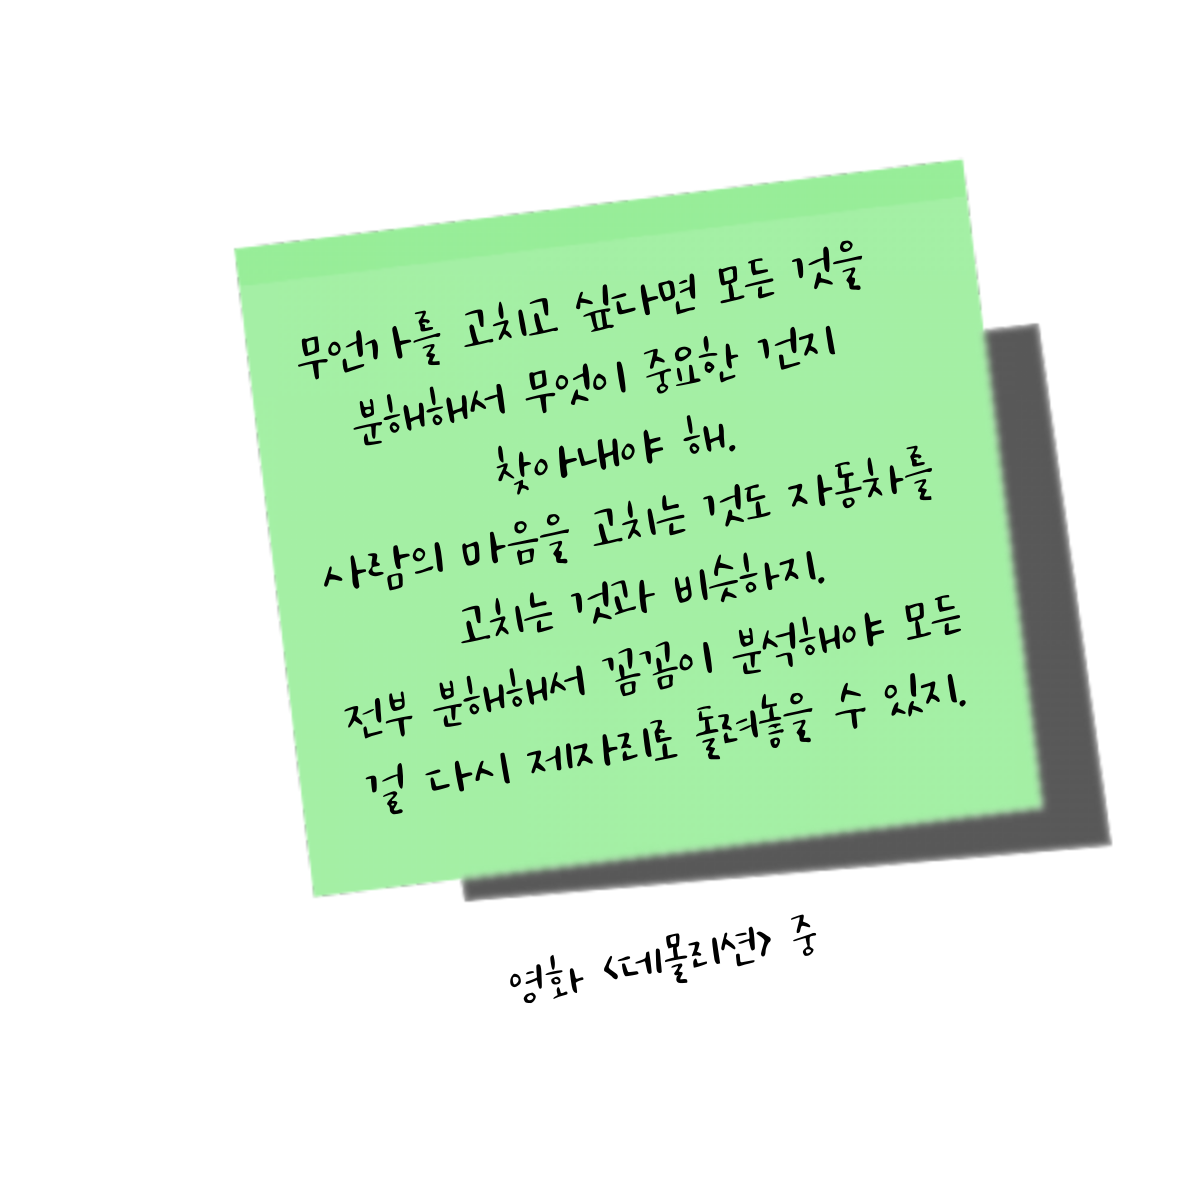 무언가를 고치고 싶다면 모든 것을
분해해서 무엇이 중요한 건지
찾아내야 해.
사람의 마음을 고치는 것도 자동차를
고치는 것과 비슷하지.
전부 분해해서 꼼꼼이 분석해야 모든
걸 다시 제자리로 돌려놓을 수 있지.
영화 <데몰리션> 중